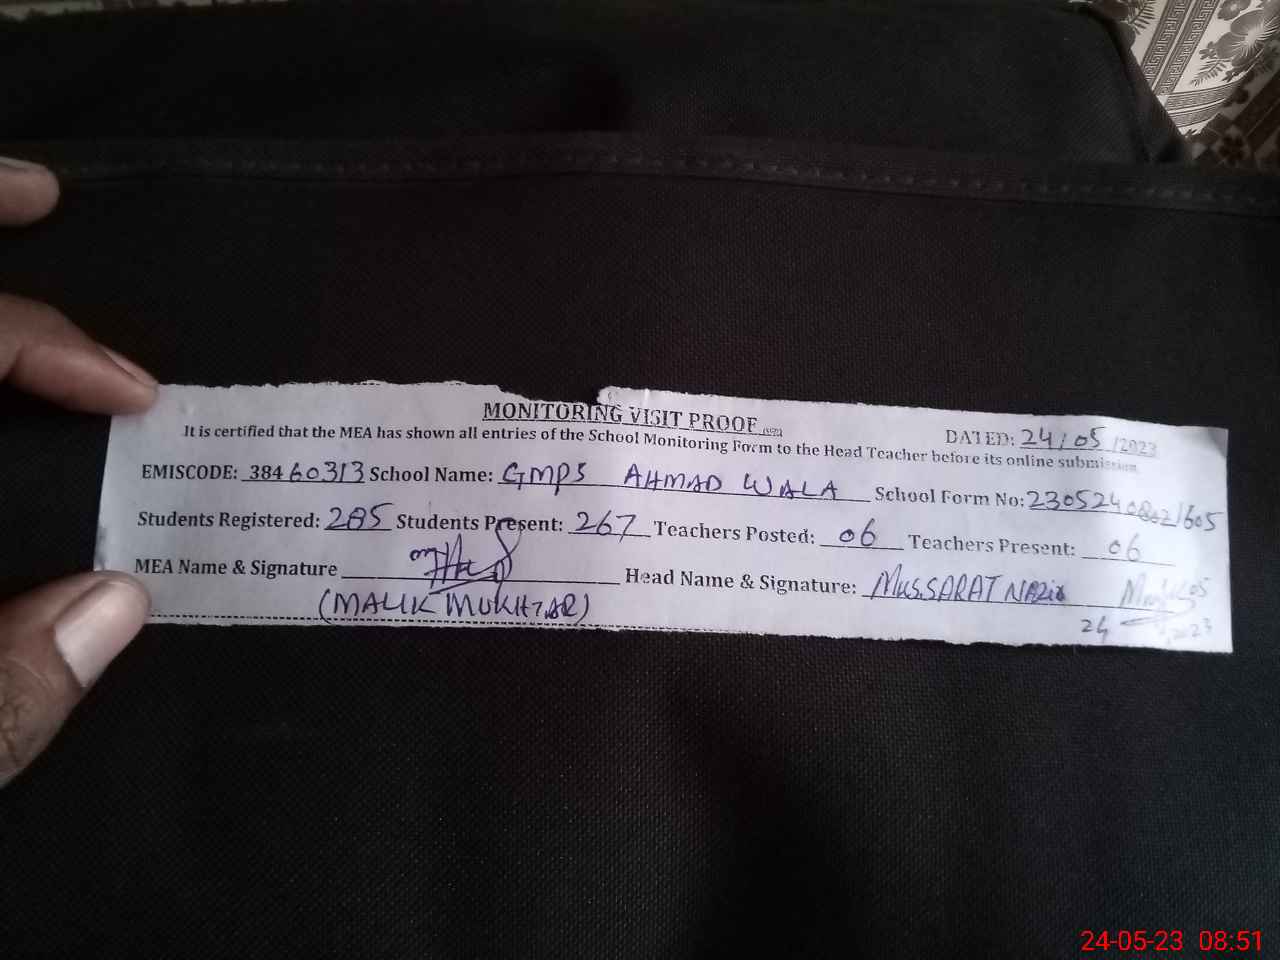 MONITORING VISIT PROOF
DATED: 24/05/2023
It is certified that the MEA has shown all entries of the School Monitoring Form to the Head Teacher before its online submission
EMISCODE: 38460313 School Name: GMPS AHMAD WALA School Form No: 23052408021605
Students Registered: 285 Students Present: 267 Teachers Posted: 06 Teachers Present: 06
MEA Name & Signature Head Name & Signature: MUSSARAT NAZIR
(MALIK MUKHTAR)
24 05 2023
24-05-23 08:51